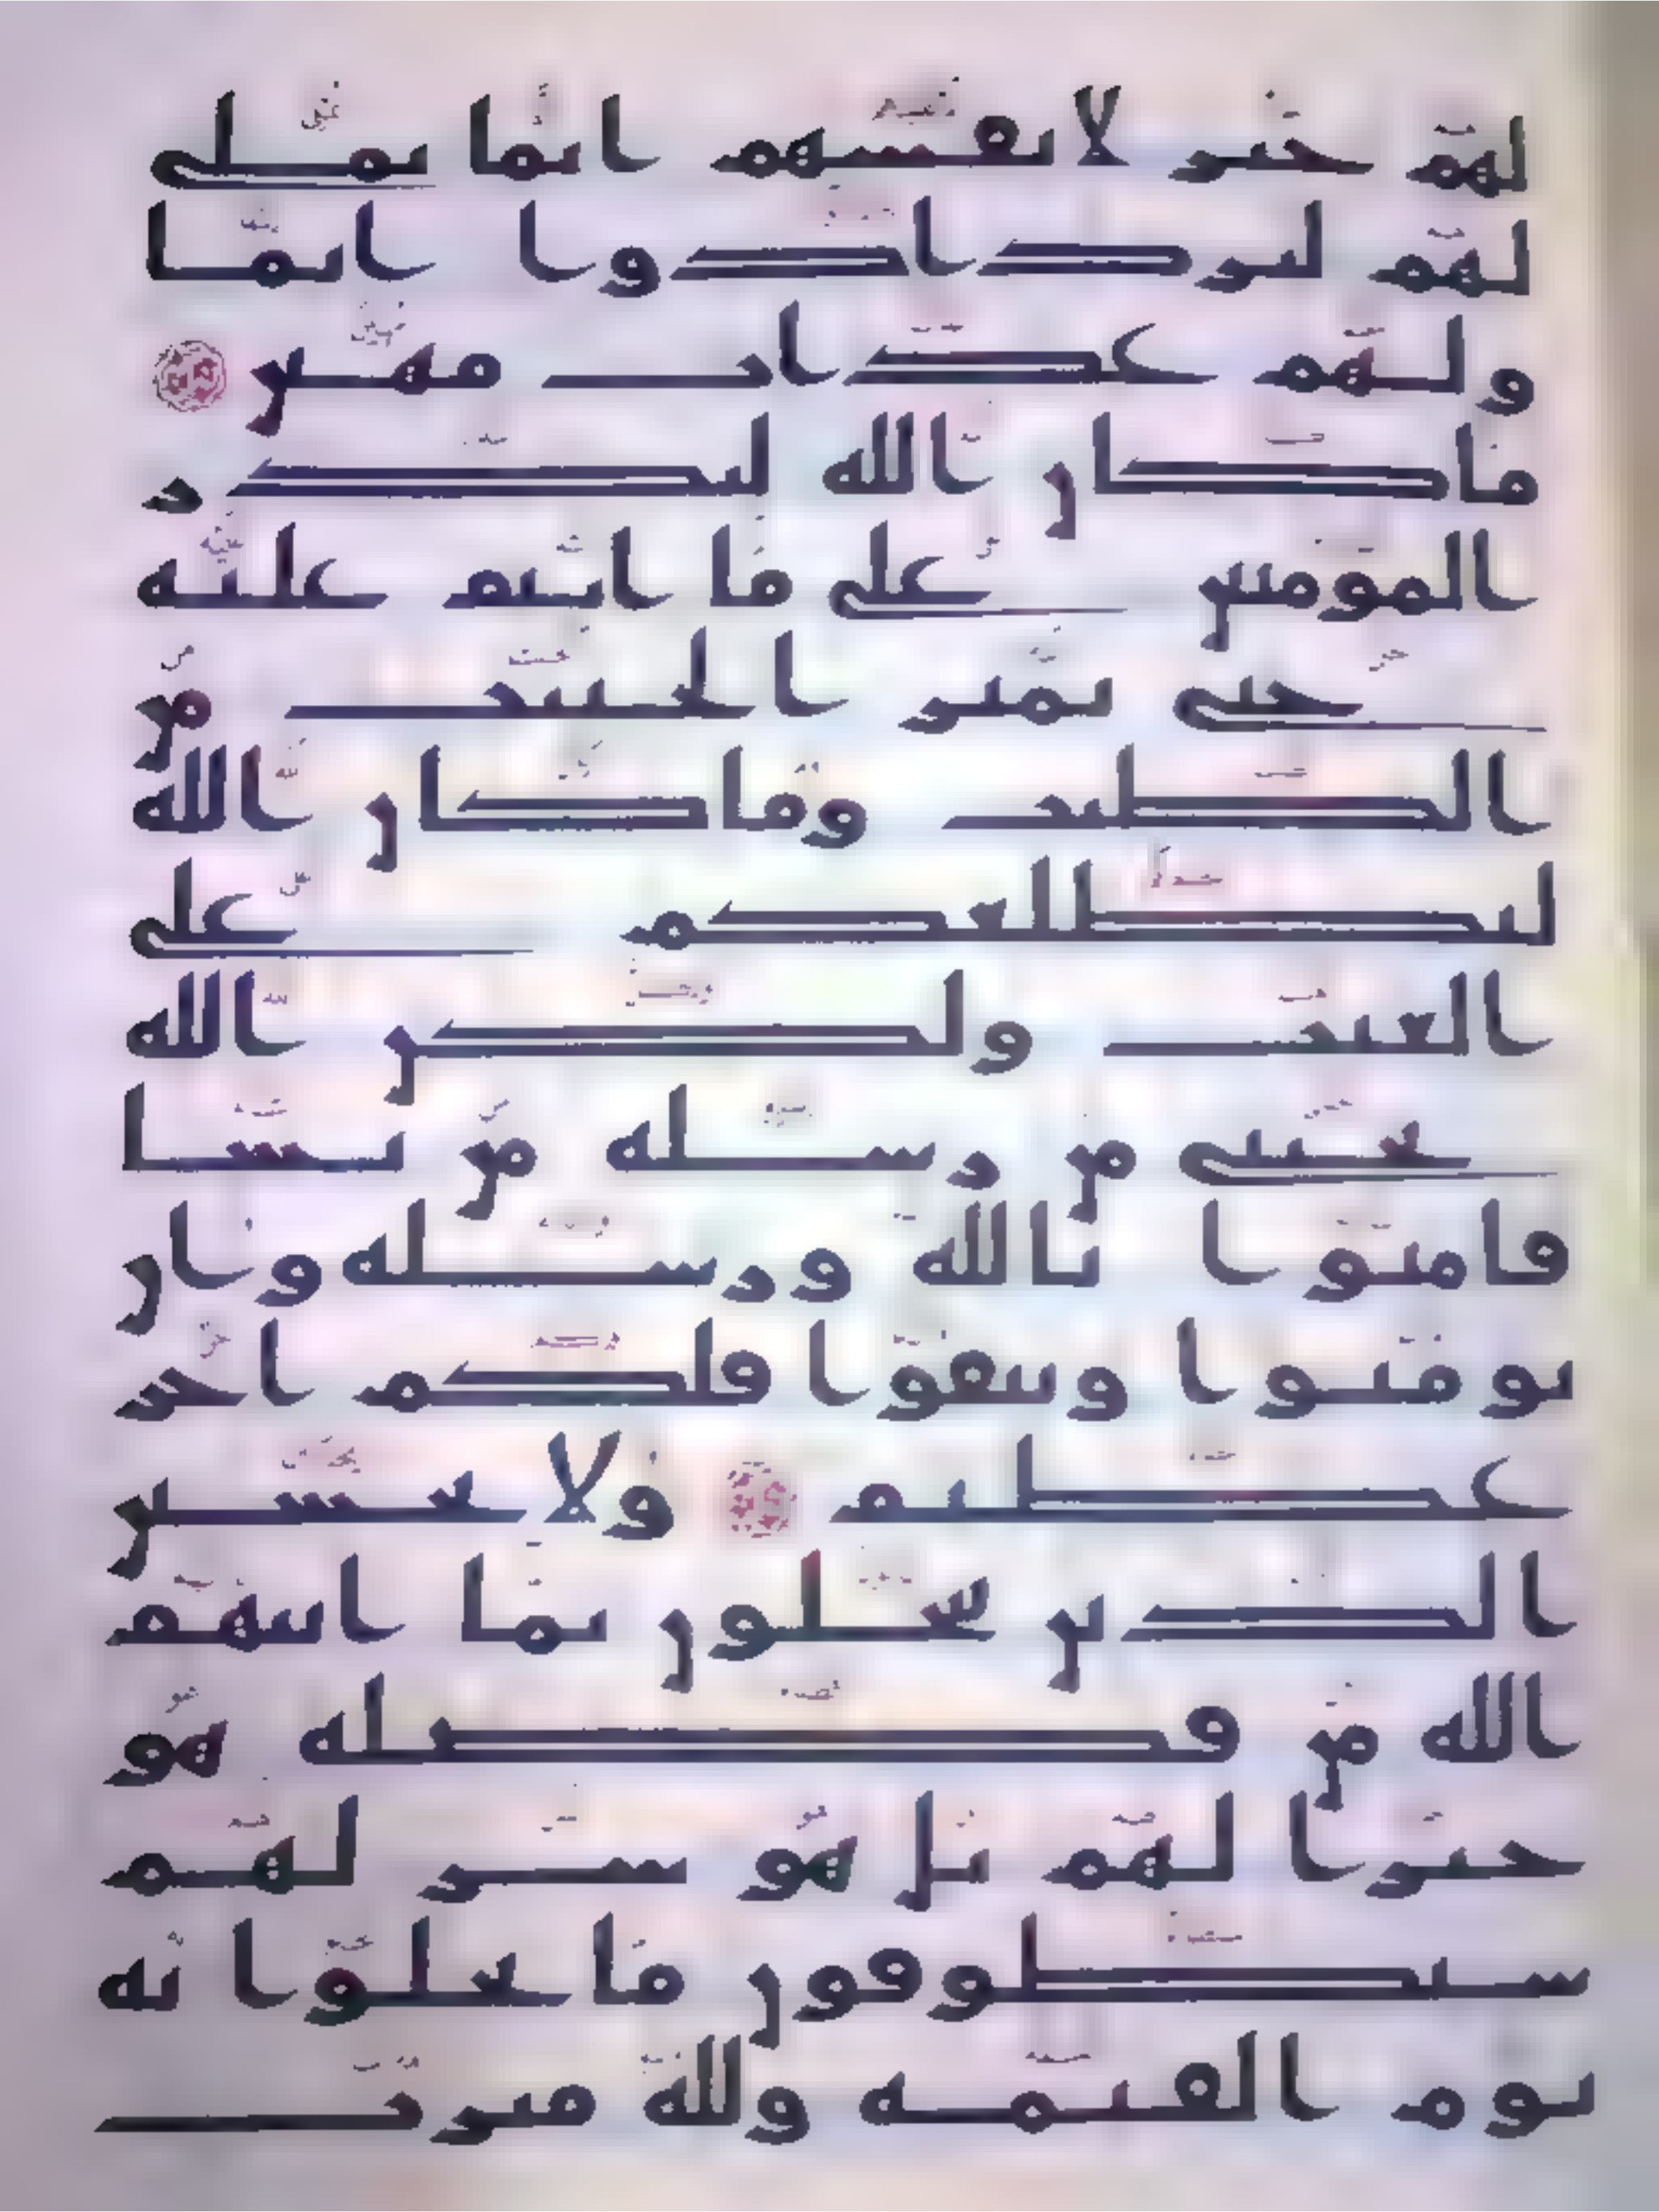 لهم خير لانفسهم انما نملي
لهم ليزدادوا اثما
ولهم عذاب مهين
ما كان الله ليذر
المومنين على ما انتم عليه
حتى يميز الخبيث من
الطيب وما كان الله
ليطلعكم على
الغيب ولكن الله
يجتبي من رسله من يشا
فامنوا بالله ورسله وان
تومنوا وتتقوا فلكم اجر
عظيم ولا يحسبن
الذين يبخلون بما اتيهم
الله من فضله هو
خيرا لهم بل هو شر لهم
سيطوقون ما بخلوا به
يوم القيمة ولله ميرث